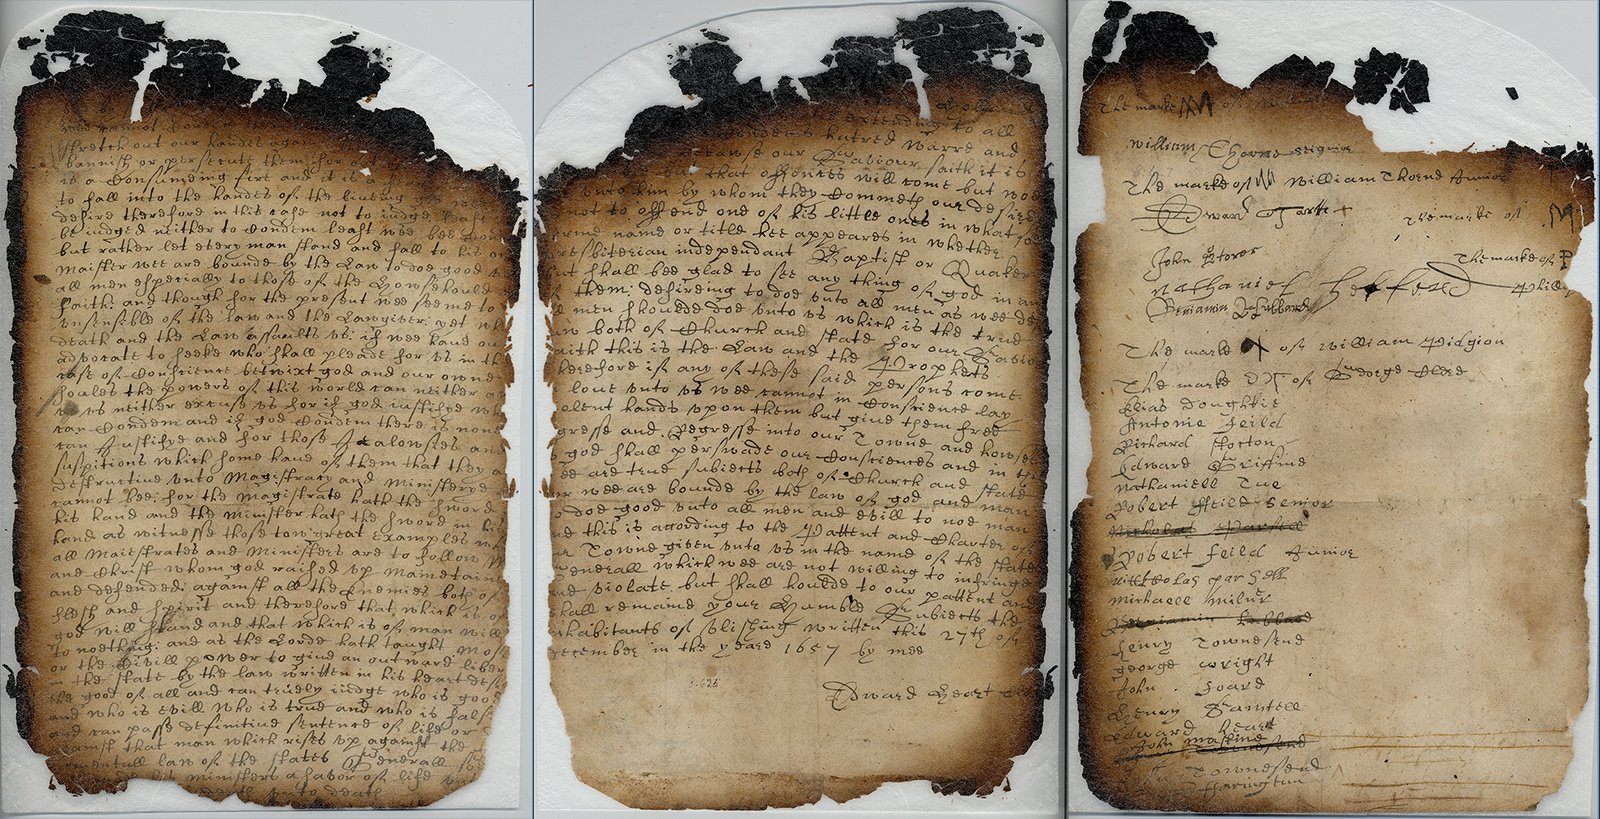 wee cannot
stretch out our handes against
bannish or persecute them for out
is a Consumeing fire and it is a
to fall into the handes of the liveing god wee
desire therefore in this case not to iudge least
be iudged neither to Condem least wee bee Con
but rather let every man stand and fall to his on
Maister wee are bounde by the Law to doe good
all men especially to those of the howsehould
faith: and though for the present wee seeme to
unsensible of the law and the Lawgiver: yet wh
death and the Law assaults us: if wee have ou
advocate to seeke who shall pleade for us in th
case of Conscience betwixt god and our owne
soules the powers of this world can neither a
us neither excuse us for if god iustifye wh
can Condem and if god Condem there is none
can Justifye and for those Jealowsies and
suspitions which some have of them that they a
destructive unto Magistracy and Ministerye
cannot bee: for the magistrate hath the sword
his hand and the Minister hath the sword in hi
hand as witnesse those tow great Examples wh
all Maiestrates and Ministers are to follow M
and Christ whom god raised up Maintain
and defended: against all the Enemies both of
flesh and spirit and therefore that which is of
god will stand and that which is of man will
to noething: and as the Lorde hath taught Mose
or the Civill power to give an outward liber
in the state by the law written in his heart desi
the good of all and can truely iudge who is goo
and who is evill who is true and who is fals
and can passe definitive sentence of life or
against that man which rises up against the
mentall law of the states Generall so
his ministers a savor of life
death unto death
extending to all
Condems hatred Warre and
cawse our Saviour saith it is
but that offences will come but wo
unto him by whom they Commeth our desire
not to offend one of his little ones in what so
orme name or title hee appeares in whether
resbiterian independant Baptist or Quaker
ut shall bee glad to see any thing of god in an
f them: desireing to doe unto all men as wee de
l men shoulde doe unto us which is the true
aw both of Church and state for our Savio
aith this is the Law and the Prophets
herefore if any of these said persons come
love unto us wee cannot in Conscience lay
olent hands upon them but give them free
gresse and Regresse into our Towne and howses
s god shall perswade our Consciences and in th
ee are true subiects both of Church and state
or wee are bounde by the law of god and man
o doe good unto all men and evill to noe man
nd this is acording to the Pattent and Charter of
ur Towne given unto us in the name of the state
enerall which wee are not willing to infringe
nd violate but shall houlde to our pattent and
hall remaine your Humble Subiects the
nhabitants of vlishing written this 27th of
ecember in the yeare 1657 by mee
8-625
Edward Heart
The marke of
William Thorne seignior
The marke of William Thorne Junior
Edward Tarte The marke of
John Storer The marke of P
Nathaniel hefferd Phili
Beniamin Hubbard
The marke X of William Pidgion
The marke of George Clere
Elias doughtie
Antonie feild
Richard Stocton
Edward Griffine
Nathaniell Tue
Robert ffeild Senior
Nickolas Parsell
Robert feild Junior
Nickolas parsell
Michaell milner
Beniamin hubbard
henry Townesend
george wright
John foard
Henry Samtell
Edward heart
John mastine
John Townesend
ffarington